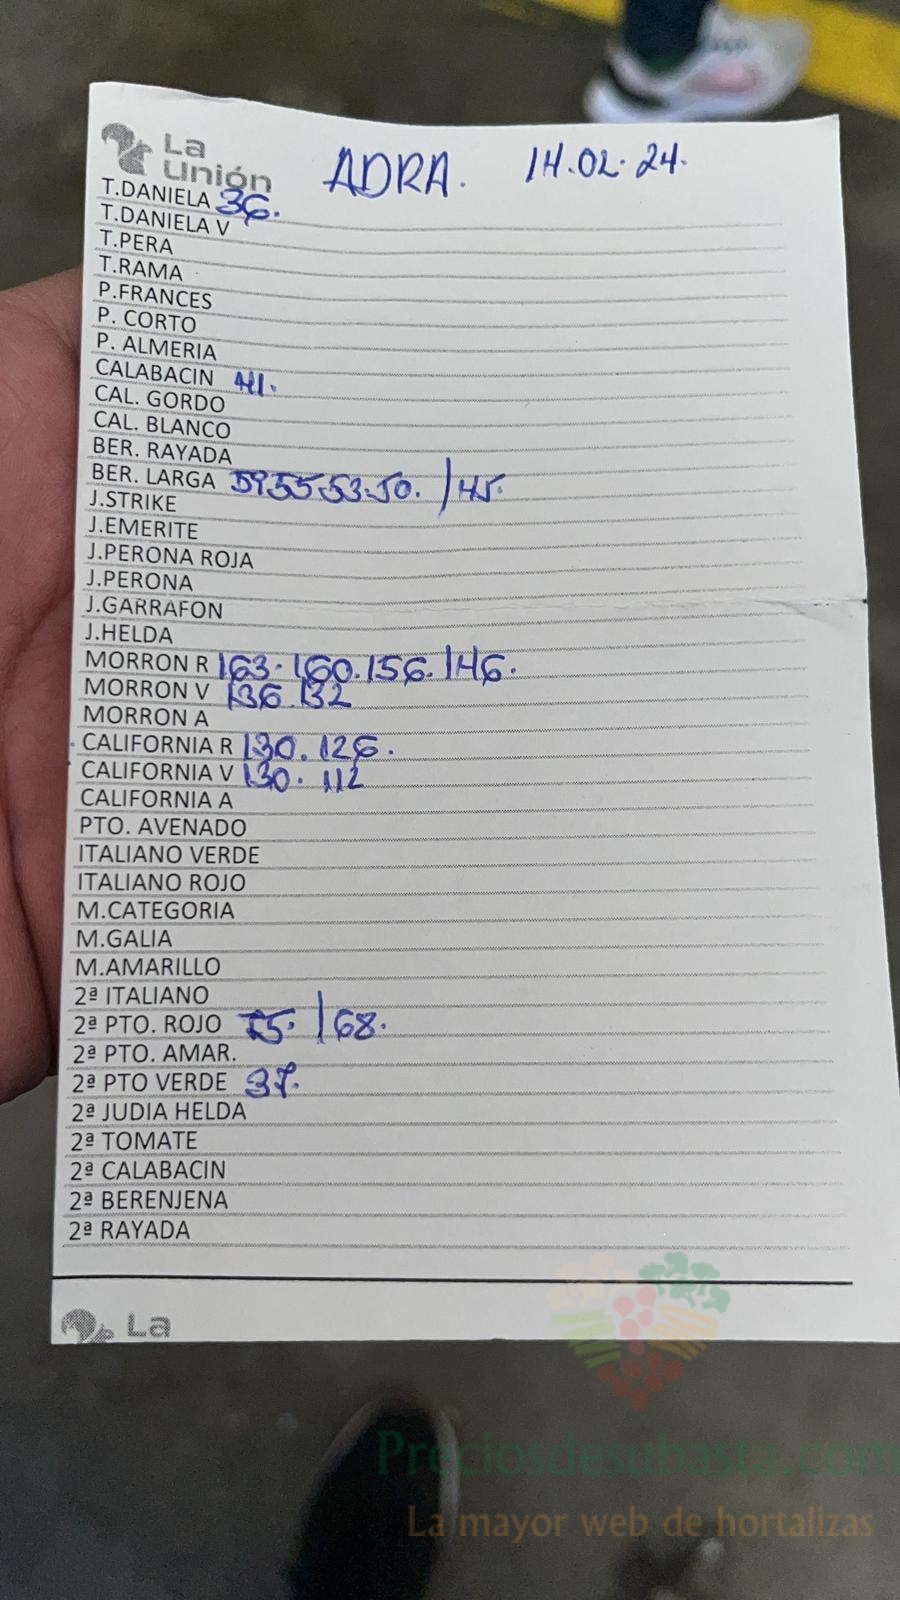 La
Unión
ADRA. 14.02.24.
T.DANIELA 36.
T.DANIELA V
T.PERA
T.RAMA
P.FRANCES
P. CORTO
P. ALMERIA
CALABACIN 41.
CAL. GORDO
CAL. BLANCO
BER. RAYADA
BER. LARGA 59.55.53.50. / 45.
J.STRIKE
J.EMERITE
J.PERONA ROJA
J.PERONA
J.GARRAFON
J.HELDA
MORRON R 163. 160. 156. 146.
MORRON V 136. 132
MORRON A
CALIFORNIA R 130. 126.
CALIFORNIA V 130. 112
CALIFORNIA A
PTO. AVENADO
ITALIANO VERDE
ITALIANO ROJO
M.CATEGORIA
M.GALIA
M.AMARILLO
2ª ITALIANO
2ª PTO. ROJO 75. / 68.
2ª PTO. AMAR.
2ª PTO VERDE 37.
2ª JUDIA HELDA
2ª TOMATE
2ª CALABACIN
2ª BERENJENA
2ª RAYADA
La
Preciosdesubasta.com
La mayor web de hortalizas